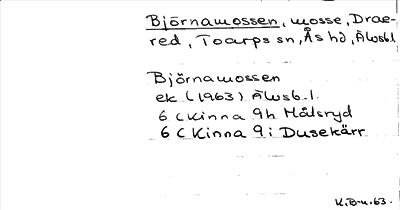 Björnamossen, mosse, Drae-
red, Toarps sn, Ås hd, Älvsb.l.
Björnamossen
ek (1963) Älvsb.l.
6 C Kinna 9h Målsryd
6 C Kinna 9i Dusekärr
K.B-n.63.